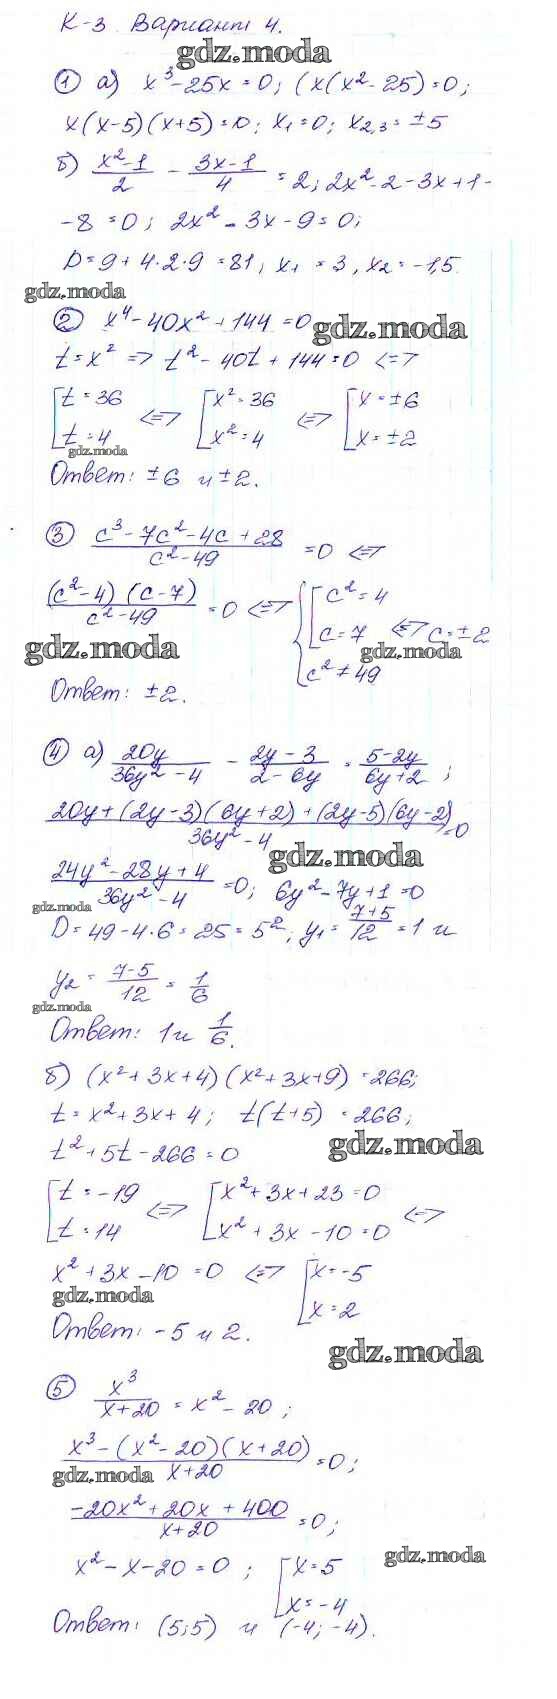 К-3 Вариант 4.
gdz.moda
① а) x³-25x=0; (x(x²-25)=0;
x(x-5)(x+5)=0; x₁=0; x₂,₃=±5
б) (x²-1)/2 - (3x-1)/4 = 2; 2x²-2-3x+1-
-8=0; 2x²-3x-9=0;
D=9+4·2·9=81; x₁=3, x₂=-1,5
gdz.moda
② x⁴-40x²+144=0
gdz.moda
t=x² => t²-40t+144=0 <=>
[t=36 <=> [x²=36 <=> [x=±6
[t=4 [x²=4 [x=±2
gdz.moda
Ответ: ±6 и ±2.
③ (c³-7c²-4c+28)/(c²-49) =0 <=>
((c²-4)(c-7))/(c²-49) =0 <=> { [c²=4
[c=7 <=> c=±2
gdz.moda gdz.moda
c²≠49
Ответ: ±2.
④ а) 20y/(36y²-4) - (2y-3)/(2-6y) = (5-2y)/(6y+2);
(20y+(2y-3)(6y+2)+(2y-5)(6y-2))/(36y²-4) =0
gdz.moda
(24y²-28y+4)/(36y²-4) =0; 6y²-7y+1=0
gdz.moda
D=49-4·6=25=5²; y₁=(7+5)/12=1 и
y₂=(7-5)/12=1/6
gdz.moda
Ответ: 1 и 1/6.
б) (x²+3x+4)(x²+3x+9)=266;
t=x²+3x+4; t(t+5)=266;
gdz.moda
t²+5t-266=0
[t=-19 <=> [x²+3x+23=0 <=>
[t=14 [x²+3x-10=0
x²+3x-10=0 <=> [x=-5
gdz.moda
[x=2
Ответ: -5 и 2.
gdz.moda
⑤ x³/(x+20) = x²-20;
(x³-(x²-20)(x+20))/(x+20) =0;
gdz.moda
(-20x²+20x+400)/(x+20) =0;
gdz.moda
x²-x-20=0; [x=5
[x=-4
Ответ: (5;5) и (-4;-4).